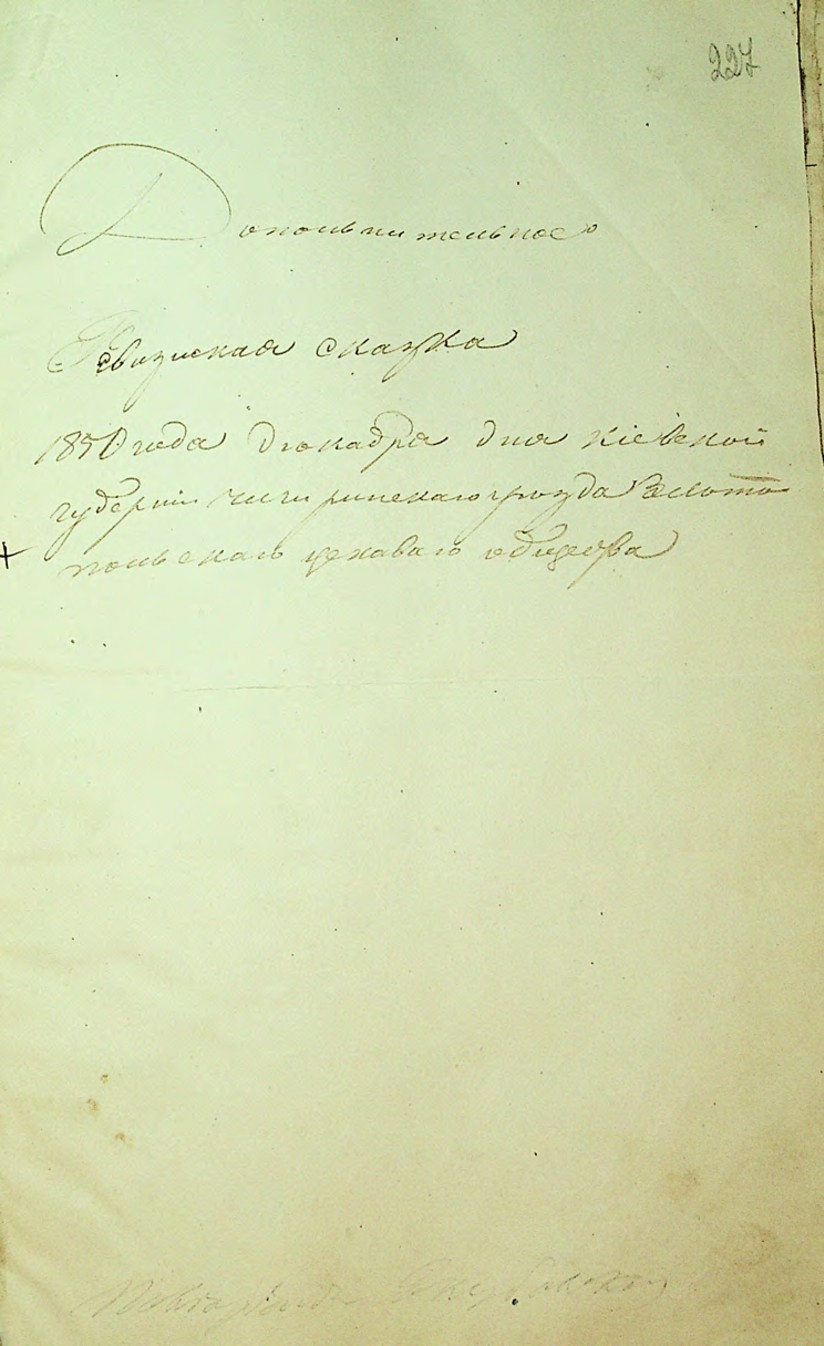 227
Дополнительное
Ревизская сказка
1850 года Декабря дня Кіевской
губерніи чигиринскаго уезда Злото
+ польскаго цеховаго общества